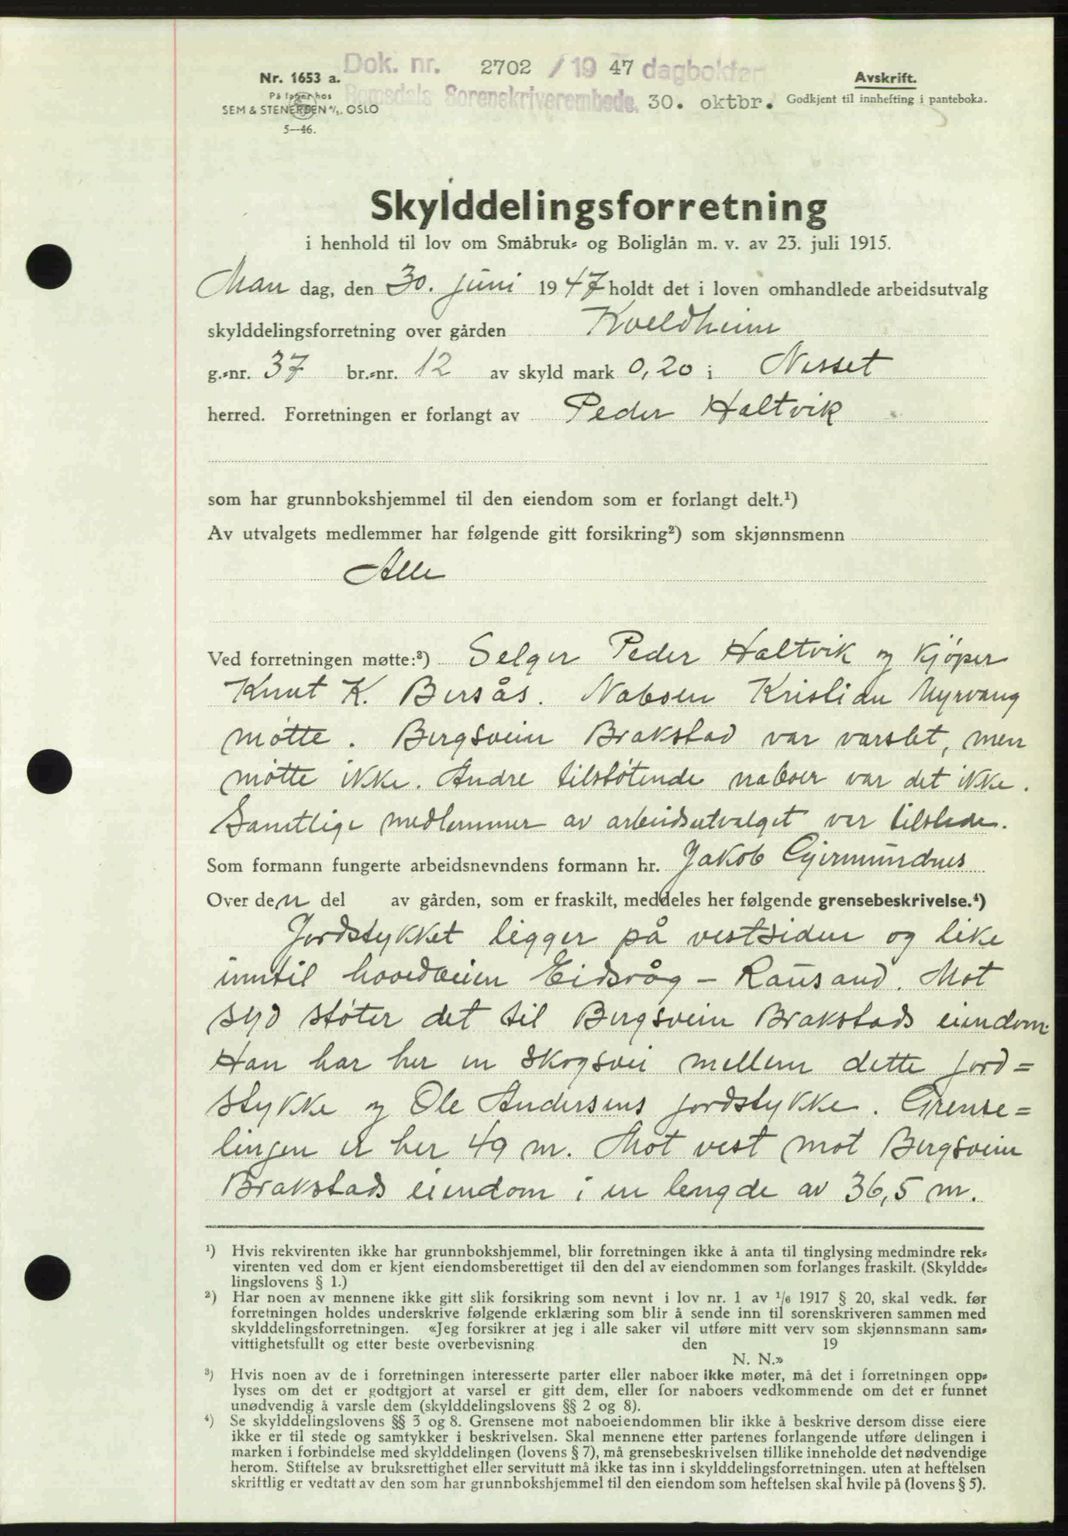 Dok. nr. 2702 / 19 47 dagboken
Romsdals Sorenskriverembede. 30. oktbr.
Nr. 1653 a.
På lager hos
SEM & STENERSEN A/S. OSLO
5—46.
Avskrift.
Godkjent til innhefting i panteboka.
Skylddelingsforretning
i henhold til lov om Småbruk- og Boliglån m. v. av 23. juli 1915.
Man dag, den 30. juni 1947 holdt det i loven omhandlede arbeidsutvalg
skylddelingsforretning over gården Kveldheim
g.-nr. 37 br.-nr. 12 av skyld mark 0,20 i Nesset
herred. Forretningen er forlangt av Peder Haltvik
som har grunnbokshjemmel til den eiendom som er forlangt delt.¹)
Av utvalgets medlemmer har følgende gitt forsikring²) som skjønnsmenn
Alle
Ved forretningen møtte:³) Selger Peder Haltvik og kjøper
Knut K. Bersås. Naboen Kristian Myrvang
møtte. Bergsvein Brakstad var varslet, men
møtte ikke. Andre tilstøtende naboer var det ikke.
Samtlige medlemmer av arbeidsutvalget var tilstede.
Som formann fungerte arbeidsnevndens formann hr. Jakob Gjermundnes
Over den del av gården, som er fraskilt, meddeles her følgende grensebeskrivelse.⁴)
Jordstykket ligger på vestsiden og like
inntil hovedveien Eidsvåg - Rausand. Mot
syd støter det til Bergsvein Brakstads eiendom.
Han har her en skogsvei mellem dette jord=
stykke og Ole Andersens jordstykke. Grense=
lingen er her 49 m. Mot vest mot Bergsvein
Brakstads eiendom i en lengde av 36,5 m.
¹) Hvis rekvirenten ikke har grunnbokshjemmel, blir forretningen ikke å anta til tinglysing medmindre rek-
virenten ved dom er kjent eiendomsberettiget til den del av eiendommen som forlanges fraskilt. (Skyldde-
lingslovens § 1.)
²) Har noen av mennene ikke gitt slik forsikring som nevnt i lov nr. 1 av 1/6 1917 § 20, skal vedk. før
forretningen holdes underskrive følgende erklæring som blir å sende inn til sorenskriveren sammen med
skylddelingsforretningen. «Jeg forsikrer at jeg i alle saker vil utføre mitt verv som skjønnsmann sam-
vittighetsfullt og etter beste overbevisning den 19
N. N.»
³) Hvis noen av de i forretningen interesserte parter eller naboer ikke møter, må det i forretningen opp-
lyses om det er godtgjort at varsel er gitt dem, eller for naboers vedkommende om det er funnet
unødvendig å varsle dem (skylddelingslovens §§ 2 og 8).
⁴) Se skylddelingslovens §§ 3 og 8. Grensene mot naboeiendommen blir ikke å beskrive dersom disse eiere
ikke er til stede og samtykker i beskrivelsen. Skal mennene etter partenes forlangende utføre delingen i
marken i forbindelse med skylddelingen (lovens § 7), må grensebeskrivelsen tillike inneholde det nødvendige
herom. Stiftelse av bruksrettighet eller servitutt må ikke tas inn i skylddelingsforretningen. uten at heftelsen
skriftlig er vedtatt av den som har grunnbokshjemmel til den eiendom som heftelsen skal hvile på (lovens § 5).